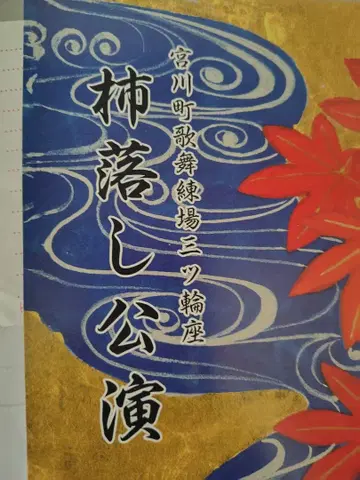 宮川町歌舞練場三ツ輪座
杮落し公演